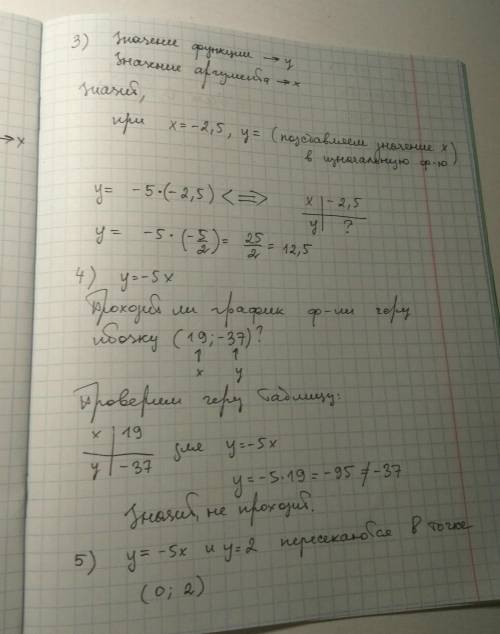 3) Значение функции → y
Значение аргумента → x
Значит,
→ x
при x = -2,5, y = (подставляем значение x)
в изначальную ф-ю
y = -5·(-2,5) <=> x | -2,5
y | ?
y = -5·(-5/2) = 25/2 = 12,5
4) y = -5x
Проходит ли график ф-ии через
точку (19; -37)?
↑ ↑
x y
Проверим через таблицу:
x | 19
y | -37
для y = -5x
y = -5·19 = -95 ≠ -37
Значит, не проходит.
5) y = -5x и y = 2 пересекаются в точке
(0; 2)